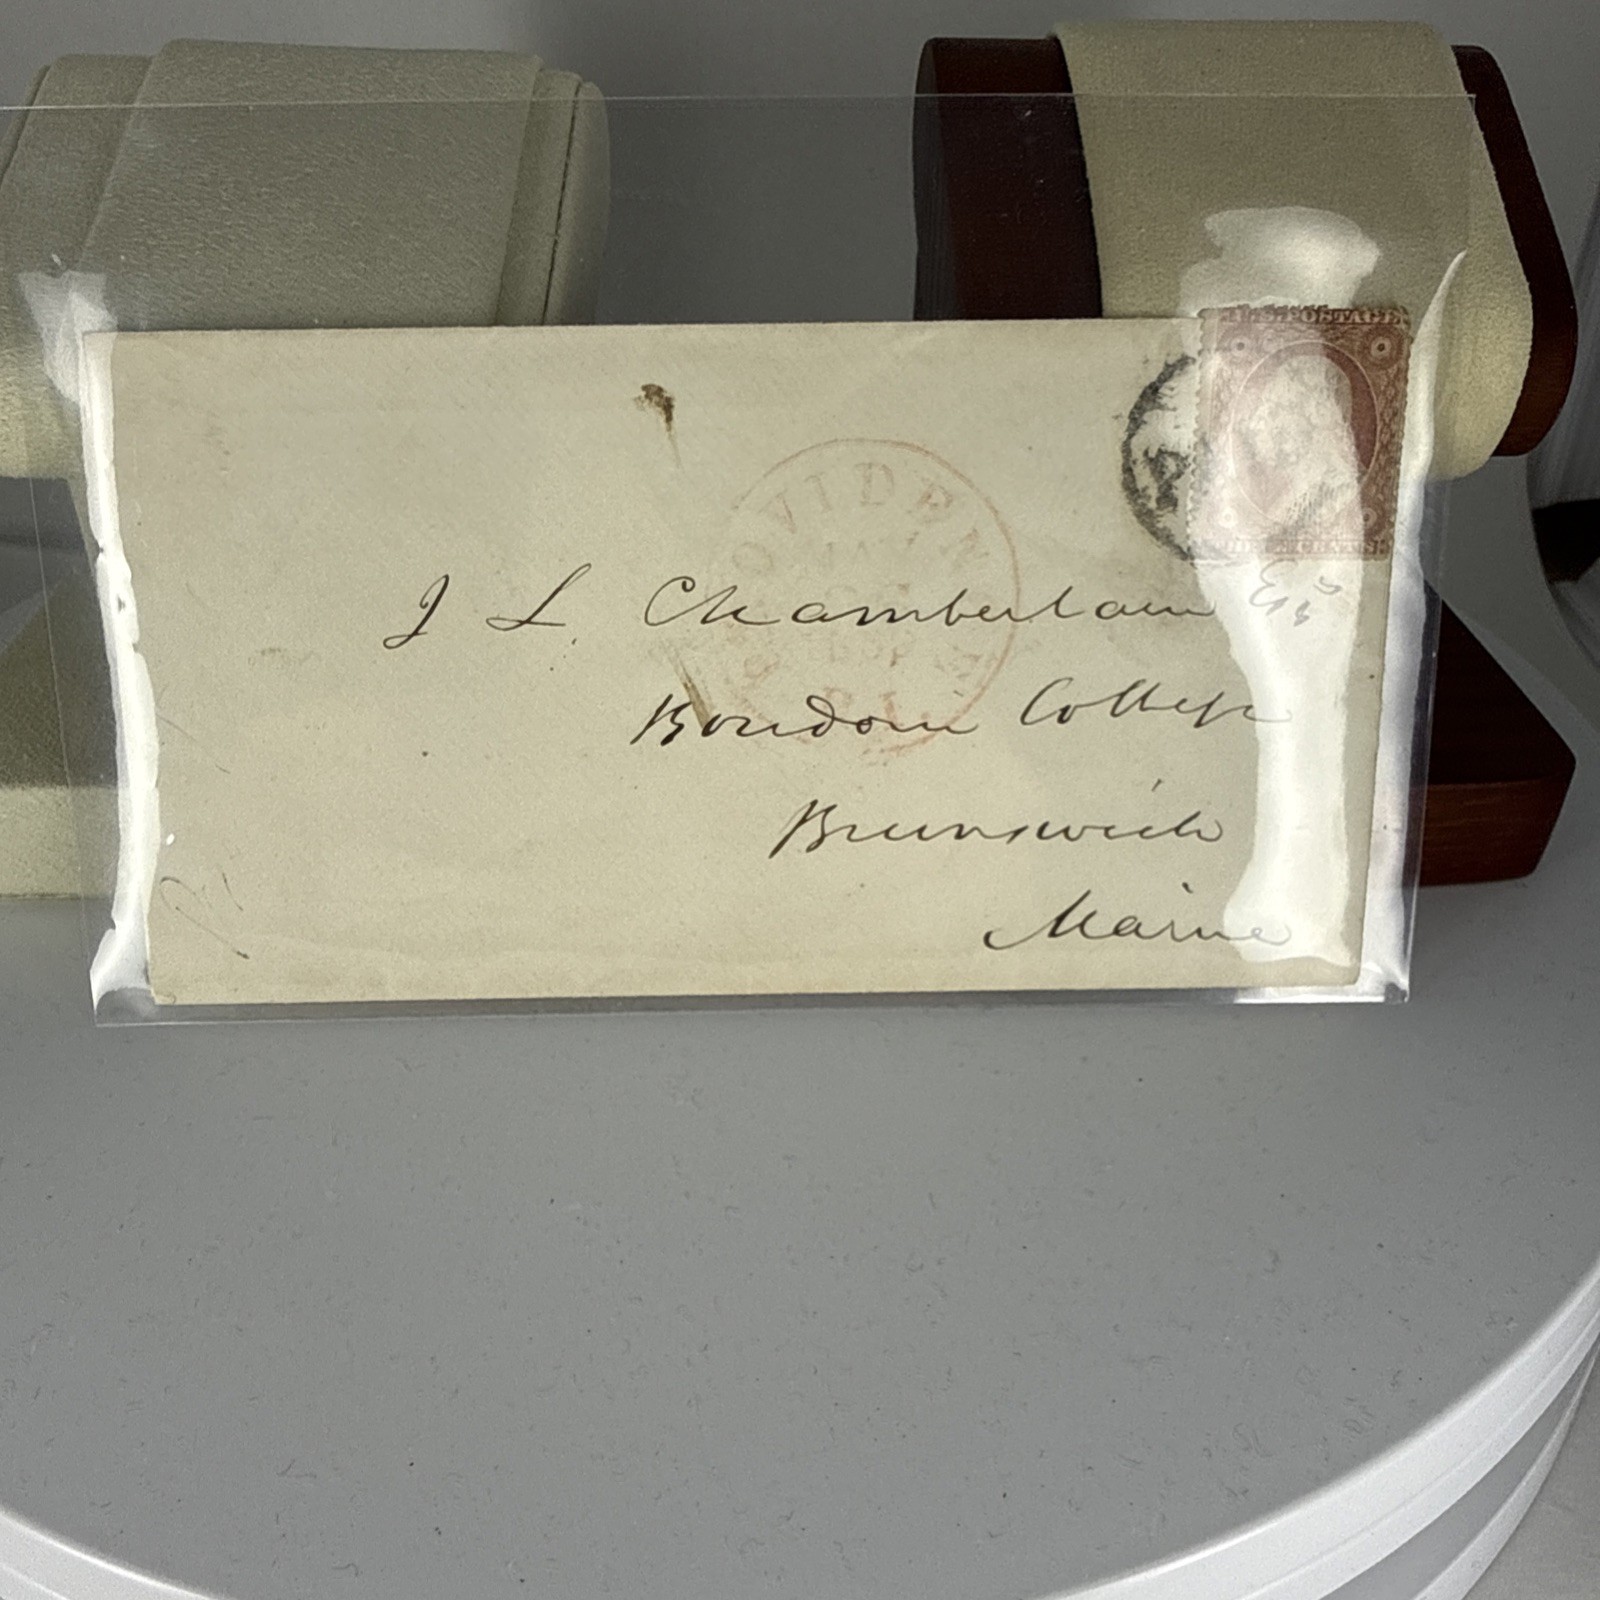 U.S. POSTAGE
OVIDEN
MAY
R.I.
J L. Chamberlain Esq
Bowdoin College
Brunswick
Maine